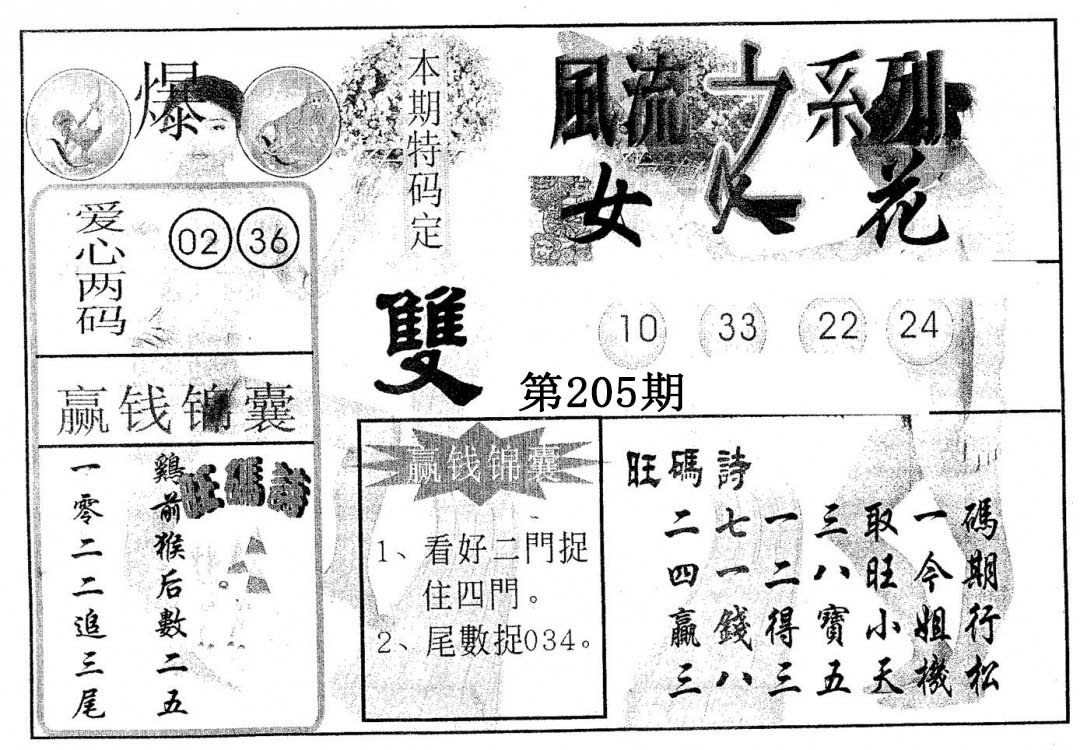 爆
本期特码定
雙
風流之系列
女人花
爱心两码
02 36
10 33 22 24
第205期
赢钱锦囊
旺碼詩
鷄前猴后數二五
一零二二追三尾
赢钱锦囊
1、看好二門捉
住四門。
2、尾數捉034。
旺碼詩
二七一三取一碼
四一二八旺今期
贏錢得寶小姐行
三八三五天機松